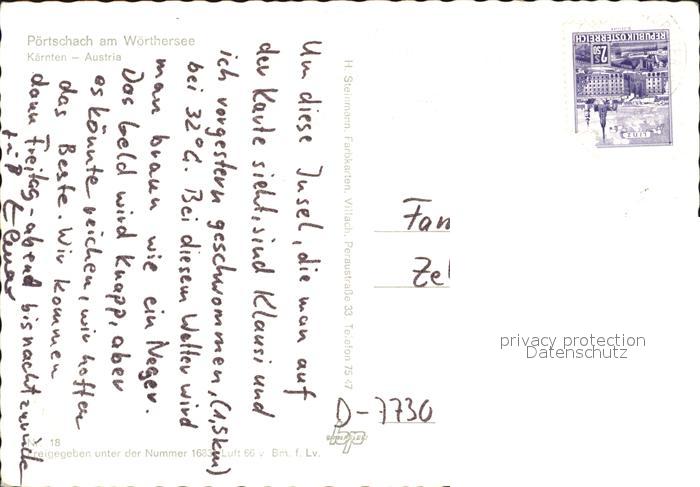 Pörtschach am Wörthersee
Kärnten – Austria
Um diese Insel, die man auf
der Karte sieht, sind Klausi und
ich vorgestern geschwommen, (1,5km)
bei 32°C. Bei diesem Wetter wird
man braun wie ein Neger.
Das Geld wird knapp, aber
es könnte reichen, wir hoffen
das Beste. Wir kommen
dann Freitag-abend bis nacht zurück
Nr. 18
Freigegeben unter der Nummer 1683 Luft 66 v. Bm. f. Lv.
H. Steinmann, Farbkarten, Villach, Peraustraße 33 Telefon 75 47
REPUBLIK ÖSTERREICH
S 2,50
LINZ
Fam
Zel
D-7730
privacy protection
Datenschutz